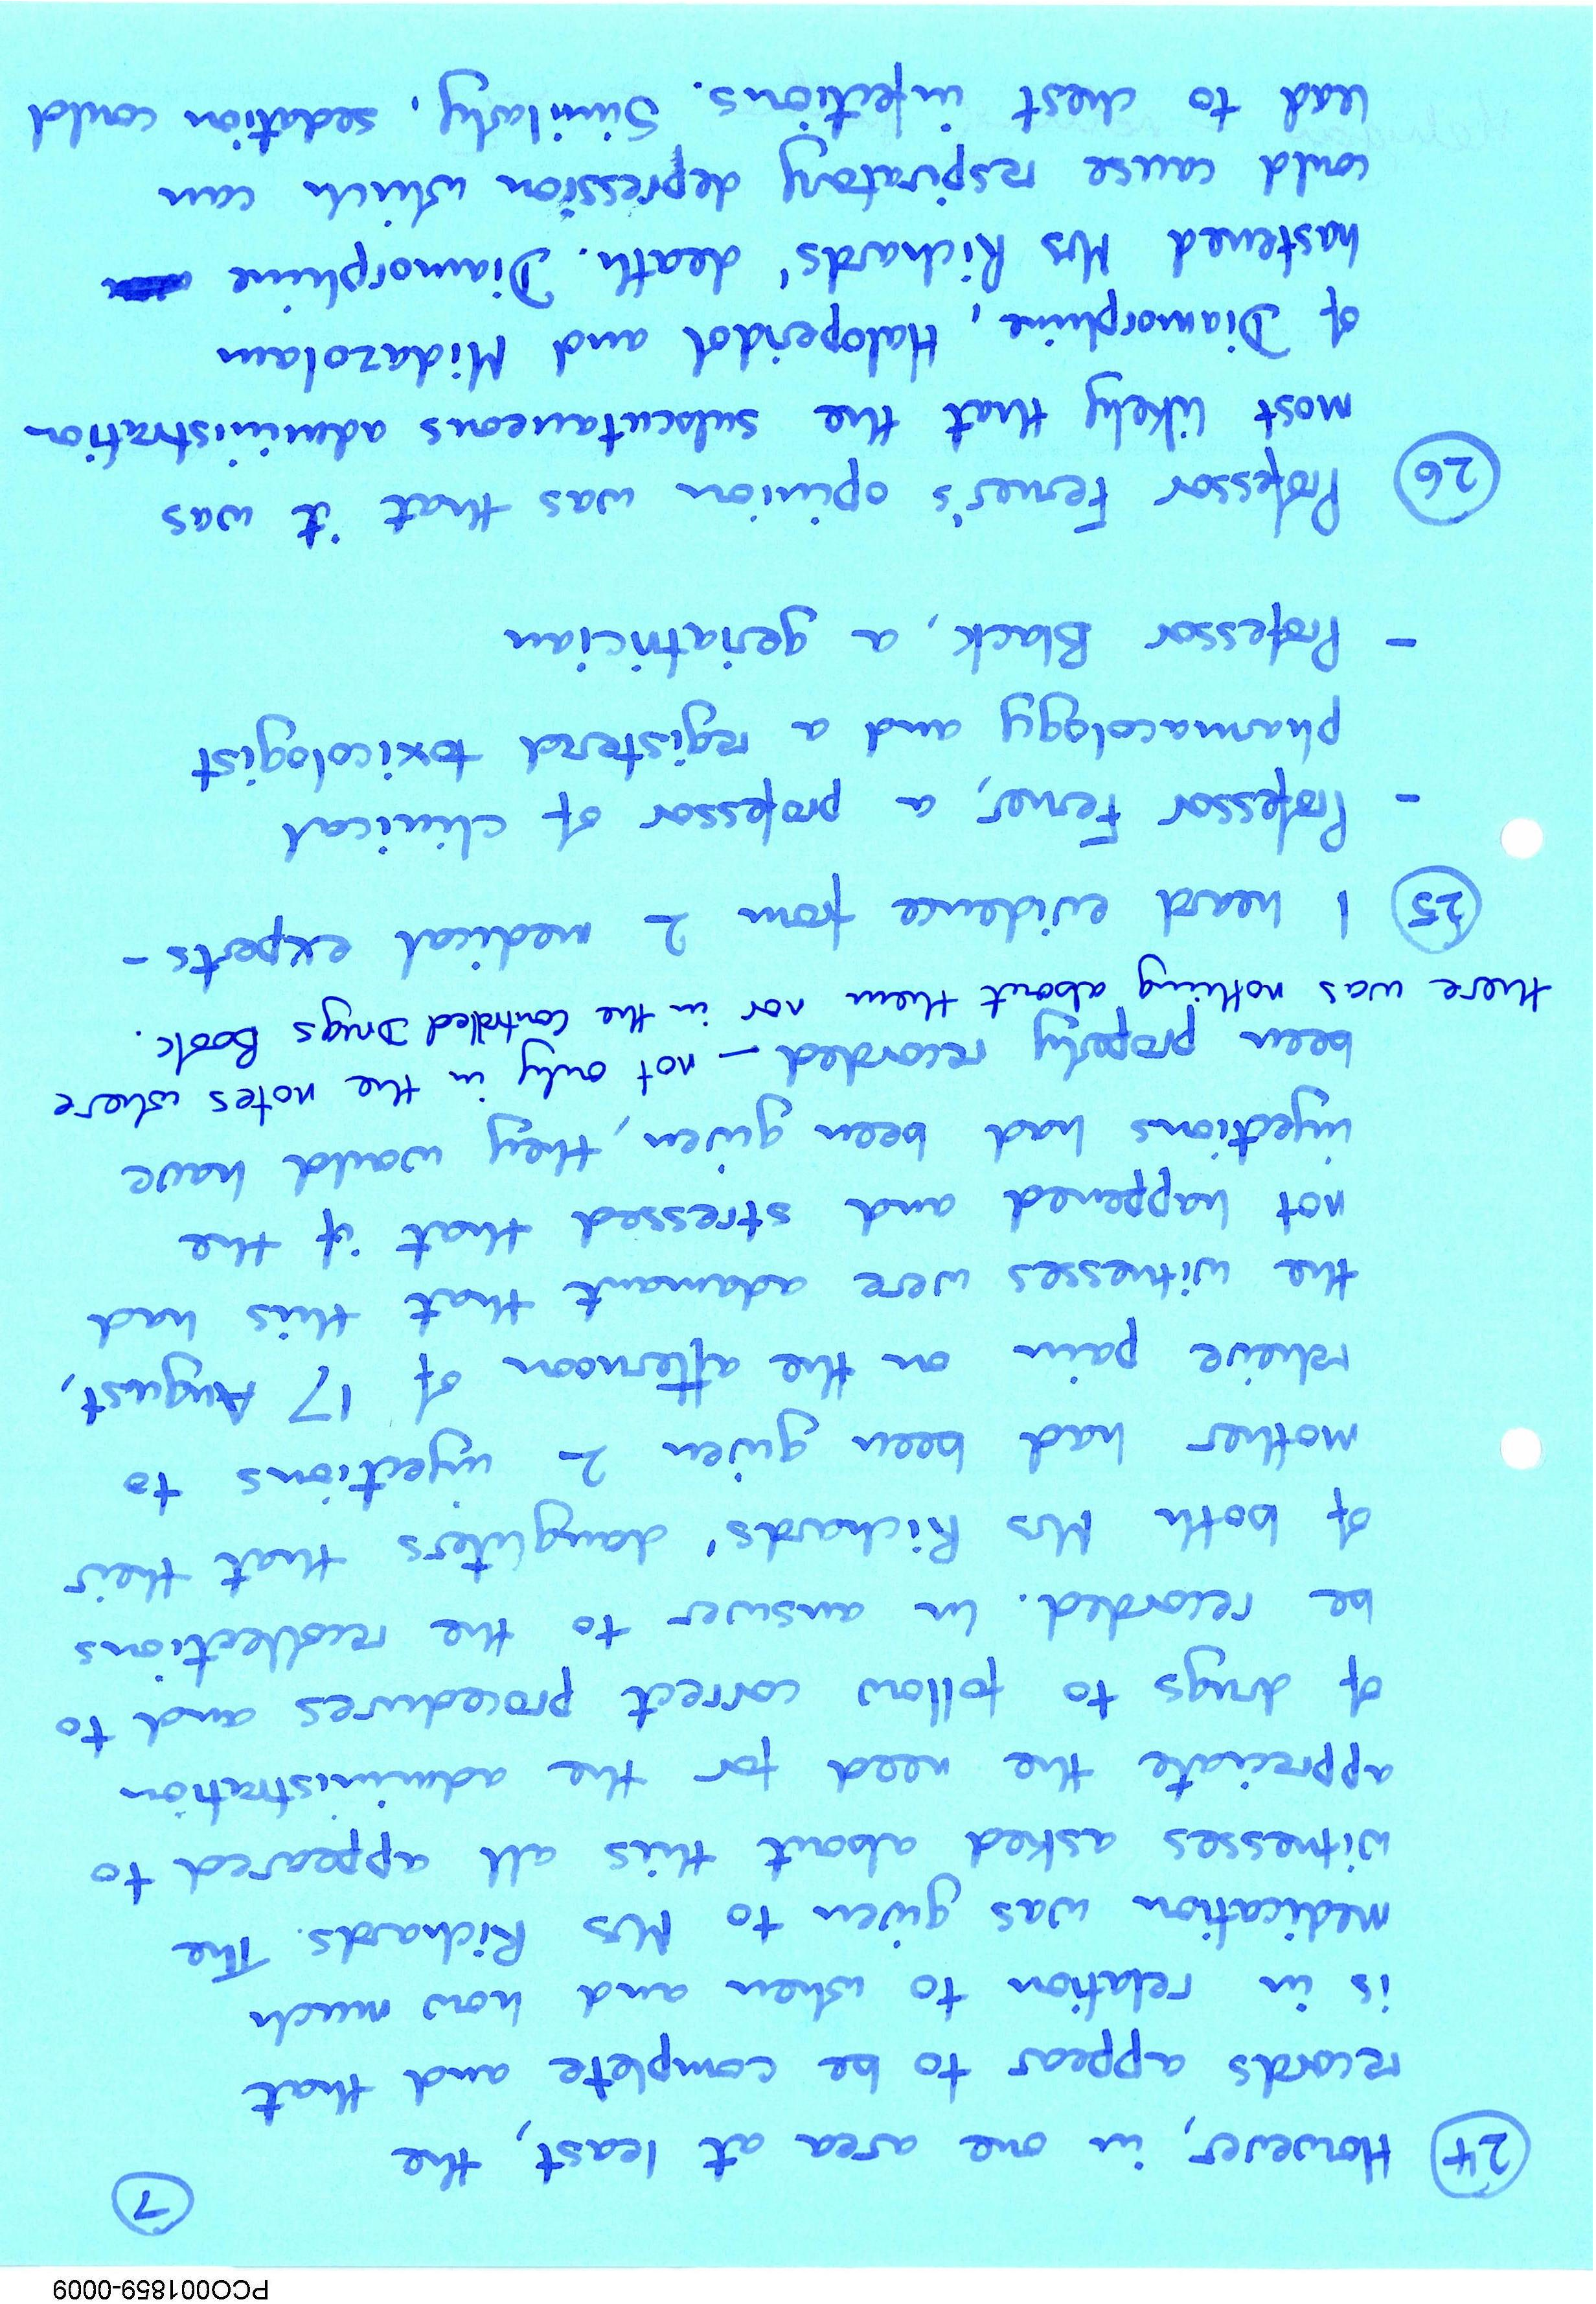 PCO001859-0009
7
24 However, in one area at least, the
records appear to be complete and that
is in relation to when and how much
medication was given to Mrs Richards. The
witnesses asked about this all appeared to
appreciate the need for the administration
of drugs to follow correct procedures and to
be recorded. In answer to the recollections
of both Mrs Richards' daughters that their
mother had been given 2 injections to
relieve pain on the afternoon of 17 August,
the witnesses were adamant that this had
not happened and stressed that if the
injections had been given, they would have
been properly recorded - not only in the notes where
there was nothing about them nor in the Controlled Drugs Book.
25 I heard evidence from 2 medical experts -
- Professor Ferner, a professor of clinical
pharmacology and a registered toxicologist
- Professor Black, a geriatrician
26 Professor Ferner's opinion was that it was
most likely that the subcutaneous administration
of Diamorphine, Haloperidol and Midazolam
hastened Mrs Richards' death. Diamorphine
could cause respiratory depression which can
lead to chest infections. Similarly, sedation could